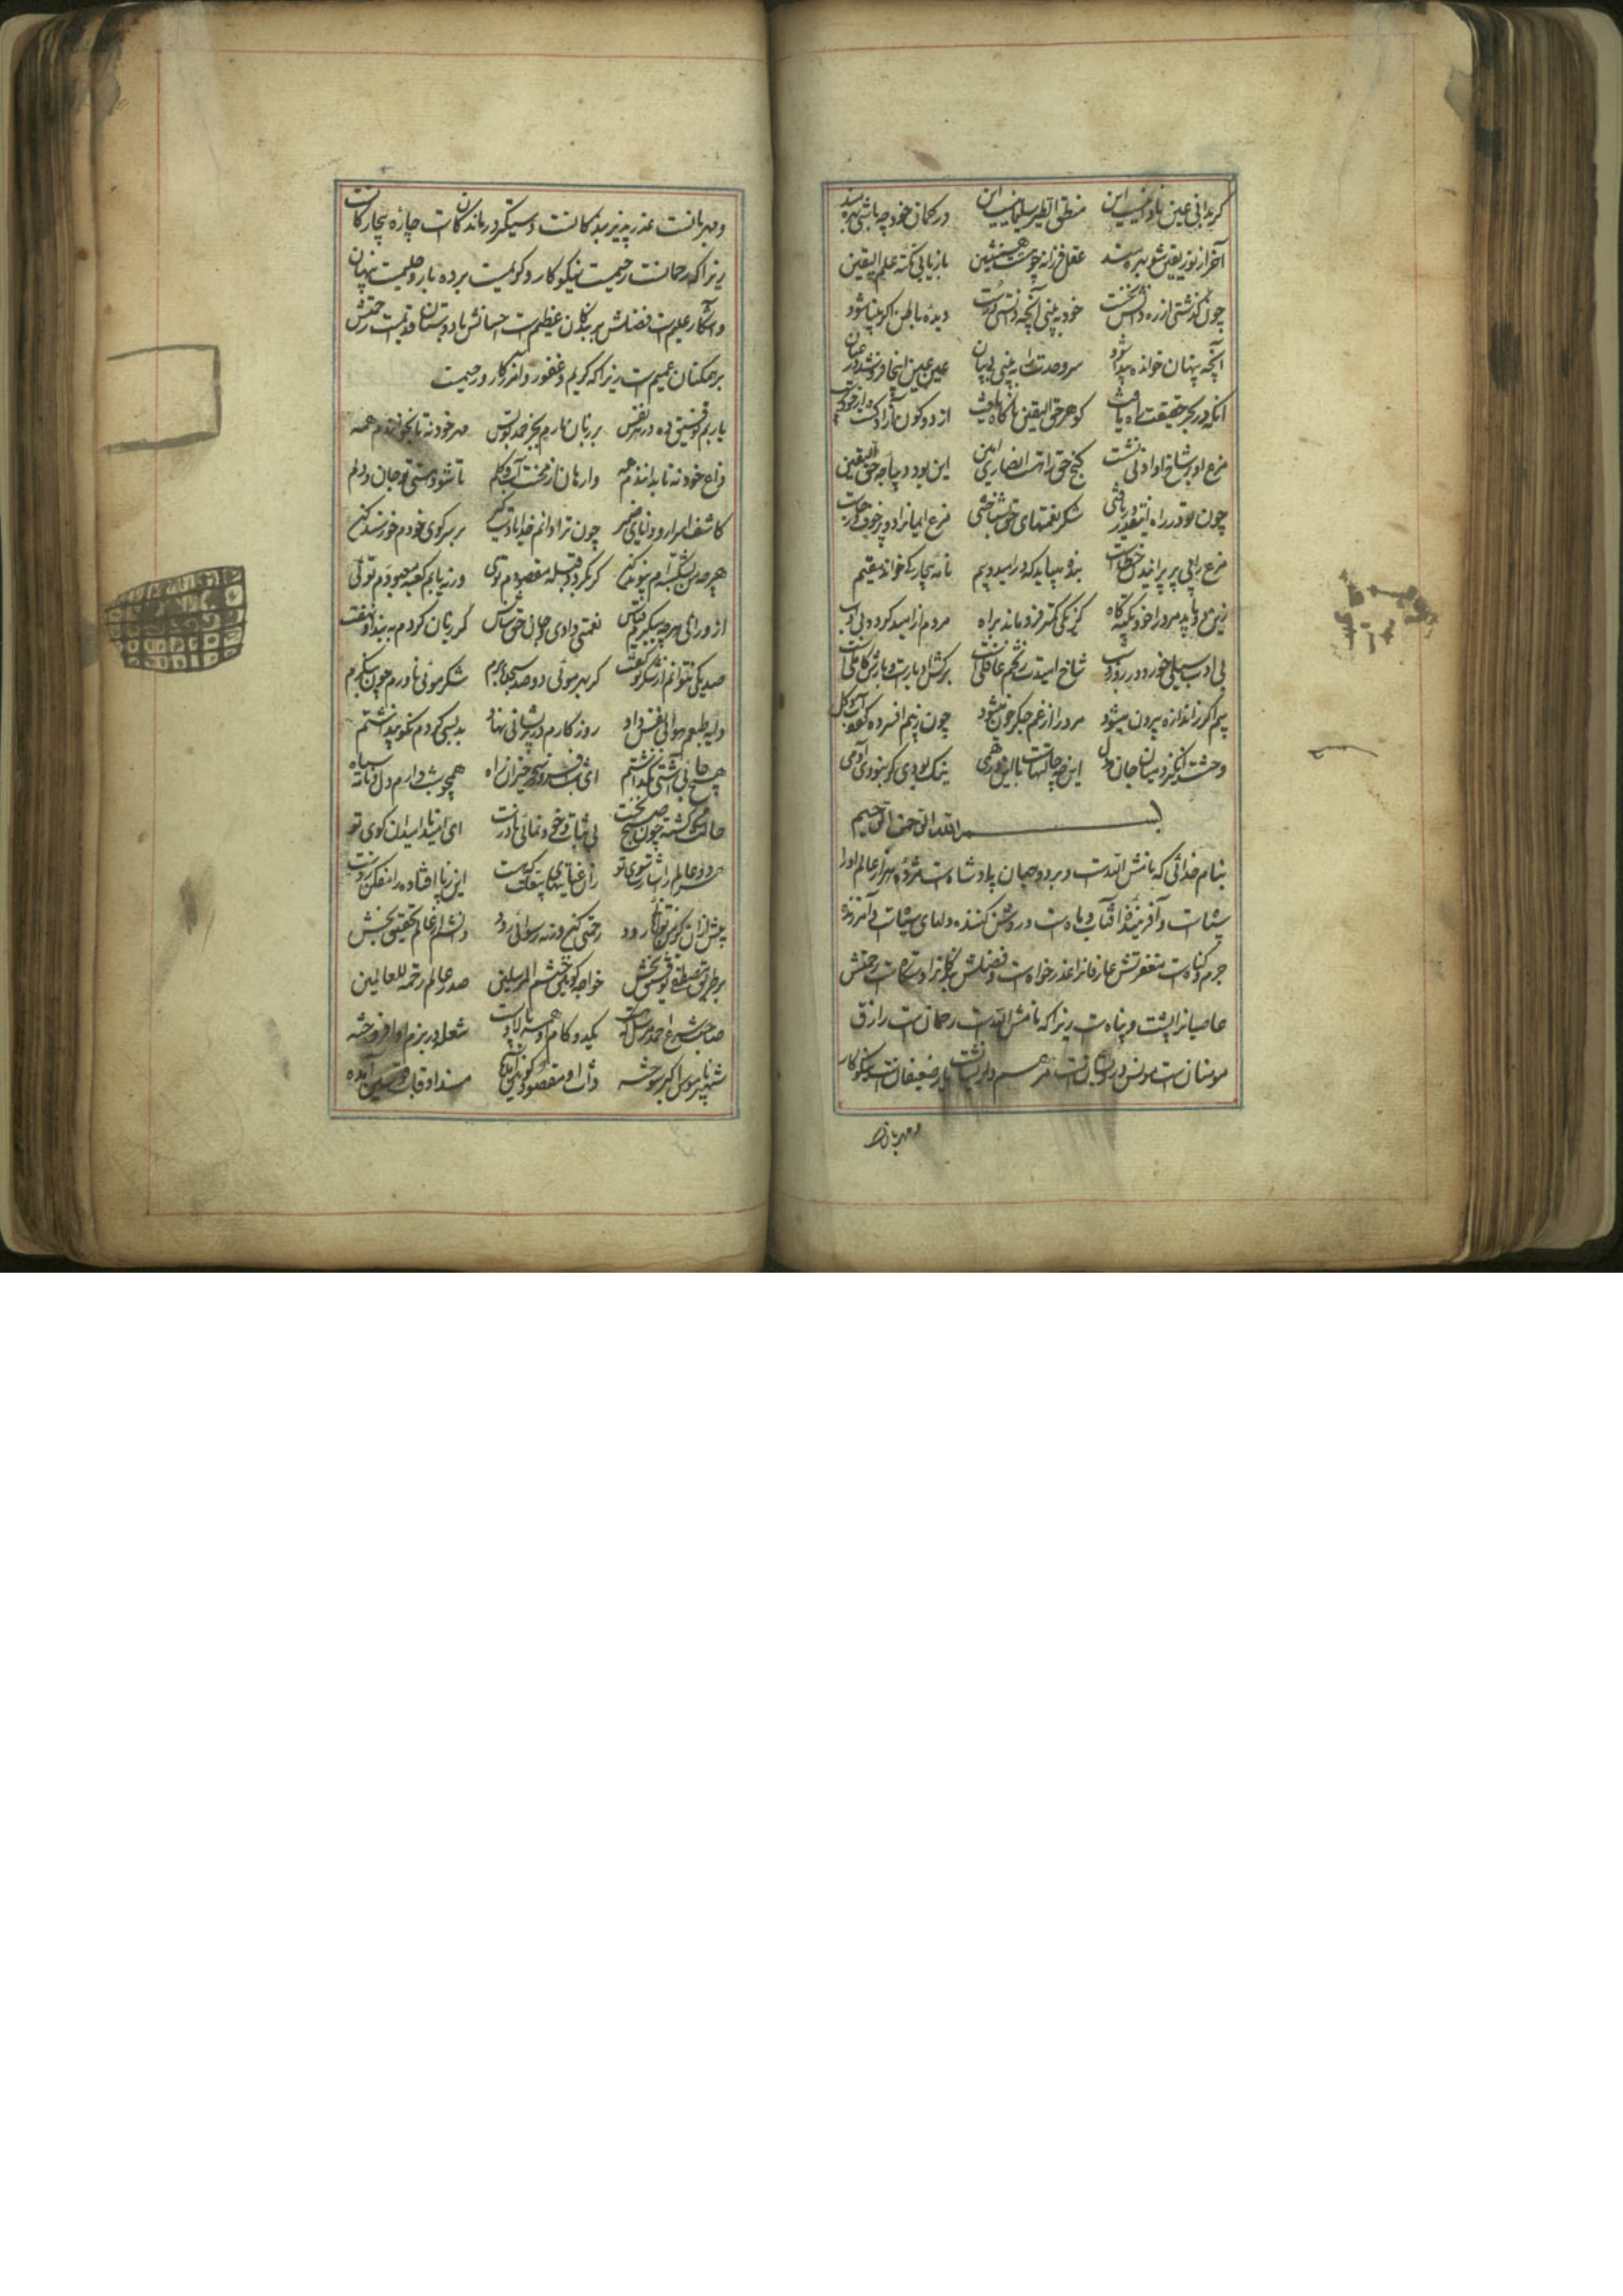 گر بدانی عین نادیدنیست این منطق الطیر سلیمانیست این در کمان خود چه باشی بهره مند
آخر از نور یقین شو بهره مند عقل فرزانه چو هست همنشین بازیابی نکته علم الیقین
چون گذشتی از ره دانش نخست خود به بینی آنچه دانستی درست دیده باطن اگر بینا شود
آنچه پنهان خوانده پیدا شود سر وحدت را به بینی بی بیان عین عین اینجا فروشد در عیان
آنکه در بحر حقیقت راه یافت گوهر حق الیقین ناگاه یافت از دو کون آزاد گشت
مرغ او بر شاخ او ادنی نشست گنج حق را هست انصاری امین این بود دیباچه حق الیقین
چون تو در راه اینقدر دریافتی شکر نعمتهای حق بشناختی مرغ ایمانرا دو پر خوف و رجاست
مرغ را بی پر پرانیدن خطاست بنده میباید که در امید و بیم نامه بیچارگی خواند مقیم
زین دو باید مرد را خود تکیه گاه کز یکی کمتر فرو ماند براه مردم از امید گردد بی ادب
بی ادب سیلی خورد در روز و شب شاخ امیدت ز تخم عافلی است برگش ادبارست و بارش کاهلی است
بیم اگر ز اندازه بیرون میشود مرد را از غم جگر خون میشود چون ز بیم افسرده گردد آب و گل
وحشت انگیزد میان جان و دل این چه حالتهاست با این
بسم الله الرحمن الرحیم
بنام خدائی که نامش الله است و بر دو جهان پادشاه است هژده هزار عالم او را
و آفریننده آفتاب و ماه است و روشن کننده دلهای سیاه است و آمرزنده
جرم و گناه است مغفرتش عارفانرا عذر خواه است و فضلش رحمتش
عاصیانرا پشت و پناه است زیرا که نامش الله است رحمان است رازق
مومنان است مونس درویشان است مرهم دلریشان است یار ضعیفان است نیکوکار
و مهربانست
و مهربانست عذر پذیر بندگانست دستگیر درماندگان است چاره بیچارگانست
زیرا که رحمانست رحیمست نیکوکار و کریمست پرده دار و حلیمست پنهان
و آشکار علیم است فضلش بر بندگان عظیم است احسانش با دوستان قدیمست رحمتش
بر همگنان عمیم است زیرا که کریم و غفور و آفریدگار و رحیمست
یاربم توفیق ده در هر نفس بر زبان نارم بجز حمد تو بس مهر خود نه تا بخوانندم همه
داغ خود نه تا بدانندم همه وارهان از محنت آب و گلم تا شود مستی تو جان و دلم
کاشف اسرار و دانای ضمیر چون ترا دانم خدایا بر سر کوی خودم خورسند کن
هر چه من بشکسته ام پیوند کن گر بگردد قبله مقصودم توئی ور نیابم کعبه معبودم توئی
نعمتی دادی
صد یکی نتوانم از شکر تو گفت گر بهر موئی دو صد سجده برم شکر موئی ناورم چون بنگرم
روزگارم در پریشانی نهاد بد بسی کردم نکو پنداشتم
هیچ جای آشتی نگذاشتم ای شب افروز سحر خیزان راه همچو شب دارم دل و نامه سیاه
بی ثبات ای امید نا امیدان کوی تو
در دو عالم راستان سوی تو زان عنایتهای این ز پا افتاده را مفکن ز دست
پیش از آن کز من توانائی رود رحمتی کن ور نه رسوائی رود دانشم از عالم تحقیق بخش
بر طریق مصطفی توفیق بخش خواجه کونین ختم المرسلین صدر عالم رحمة للعالمین
صاحب شرع احمد مرسل شعله در بزم او افروخته
شهپر ناموس اکبر سوخته ذات او مقصود کونین آمده مسند او قاب قوسین آمده